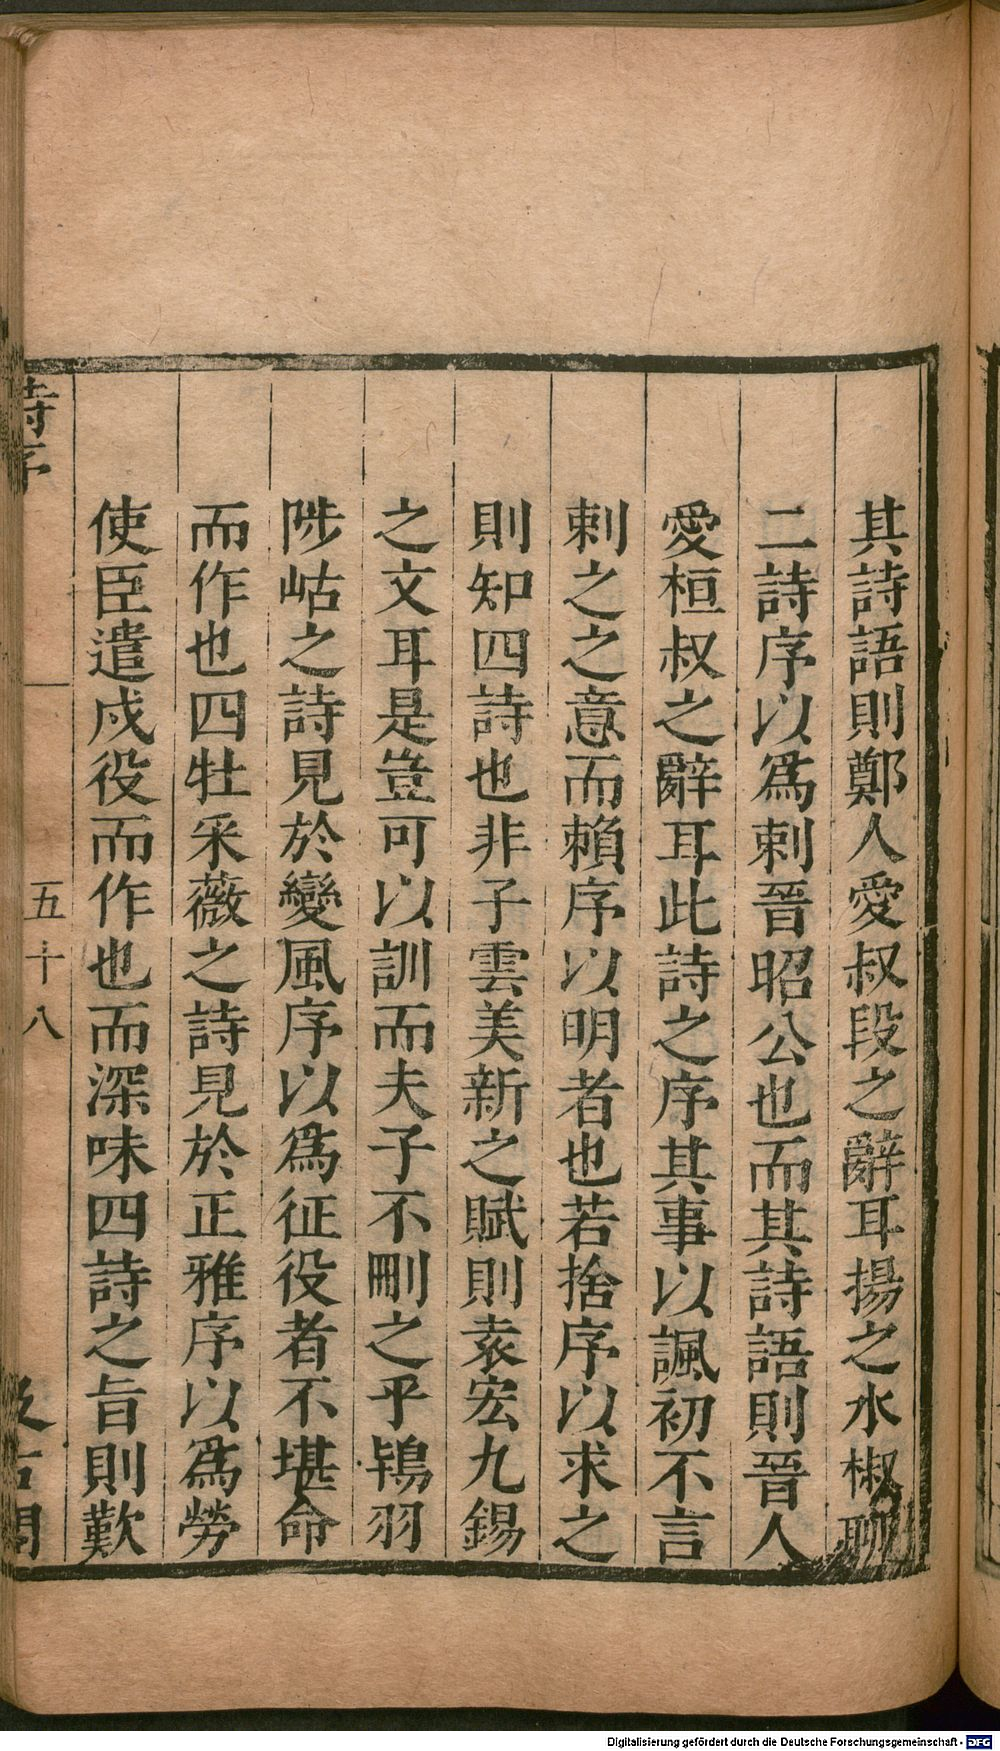 其詩語則鄭人愛叔段之辭耳揚之水椒聊
二詩序以爲刺晉昭公也而其詩語則晉人
愛桓叔之辭耳此詩之序其事以諷初不言
刺之之意而賴序以明者也若捨序以求之
則知四詩也非子雲美新之賦則袁宏九錫
之文耳是豈可以訓而夫子不刪之乎鴇羽
陟岵之詩見於變風序以爲征役者不堪命
而作也四牡采薇之詩見於正雅序以爲勞
使臣遣戍役而作也而深味四詩之旨則歎
詩序
五十八
汲古閣
Digitalisierung gefördert durch die Deutsche Forschungsgemeinschaft - DFG